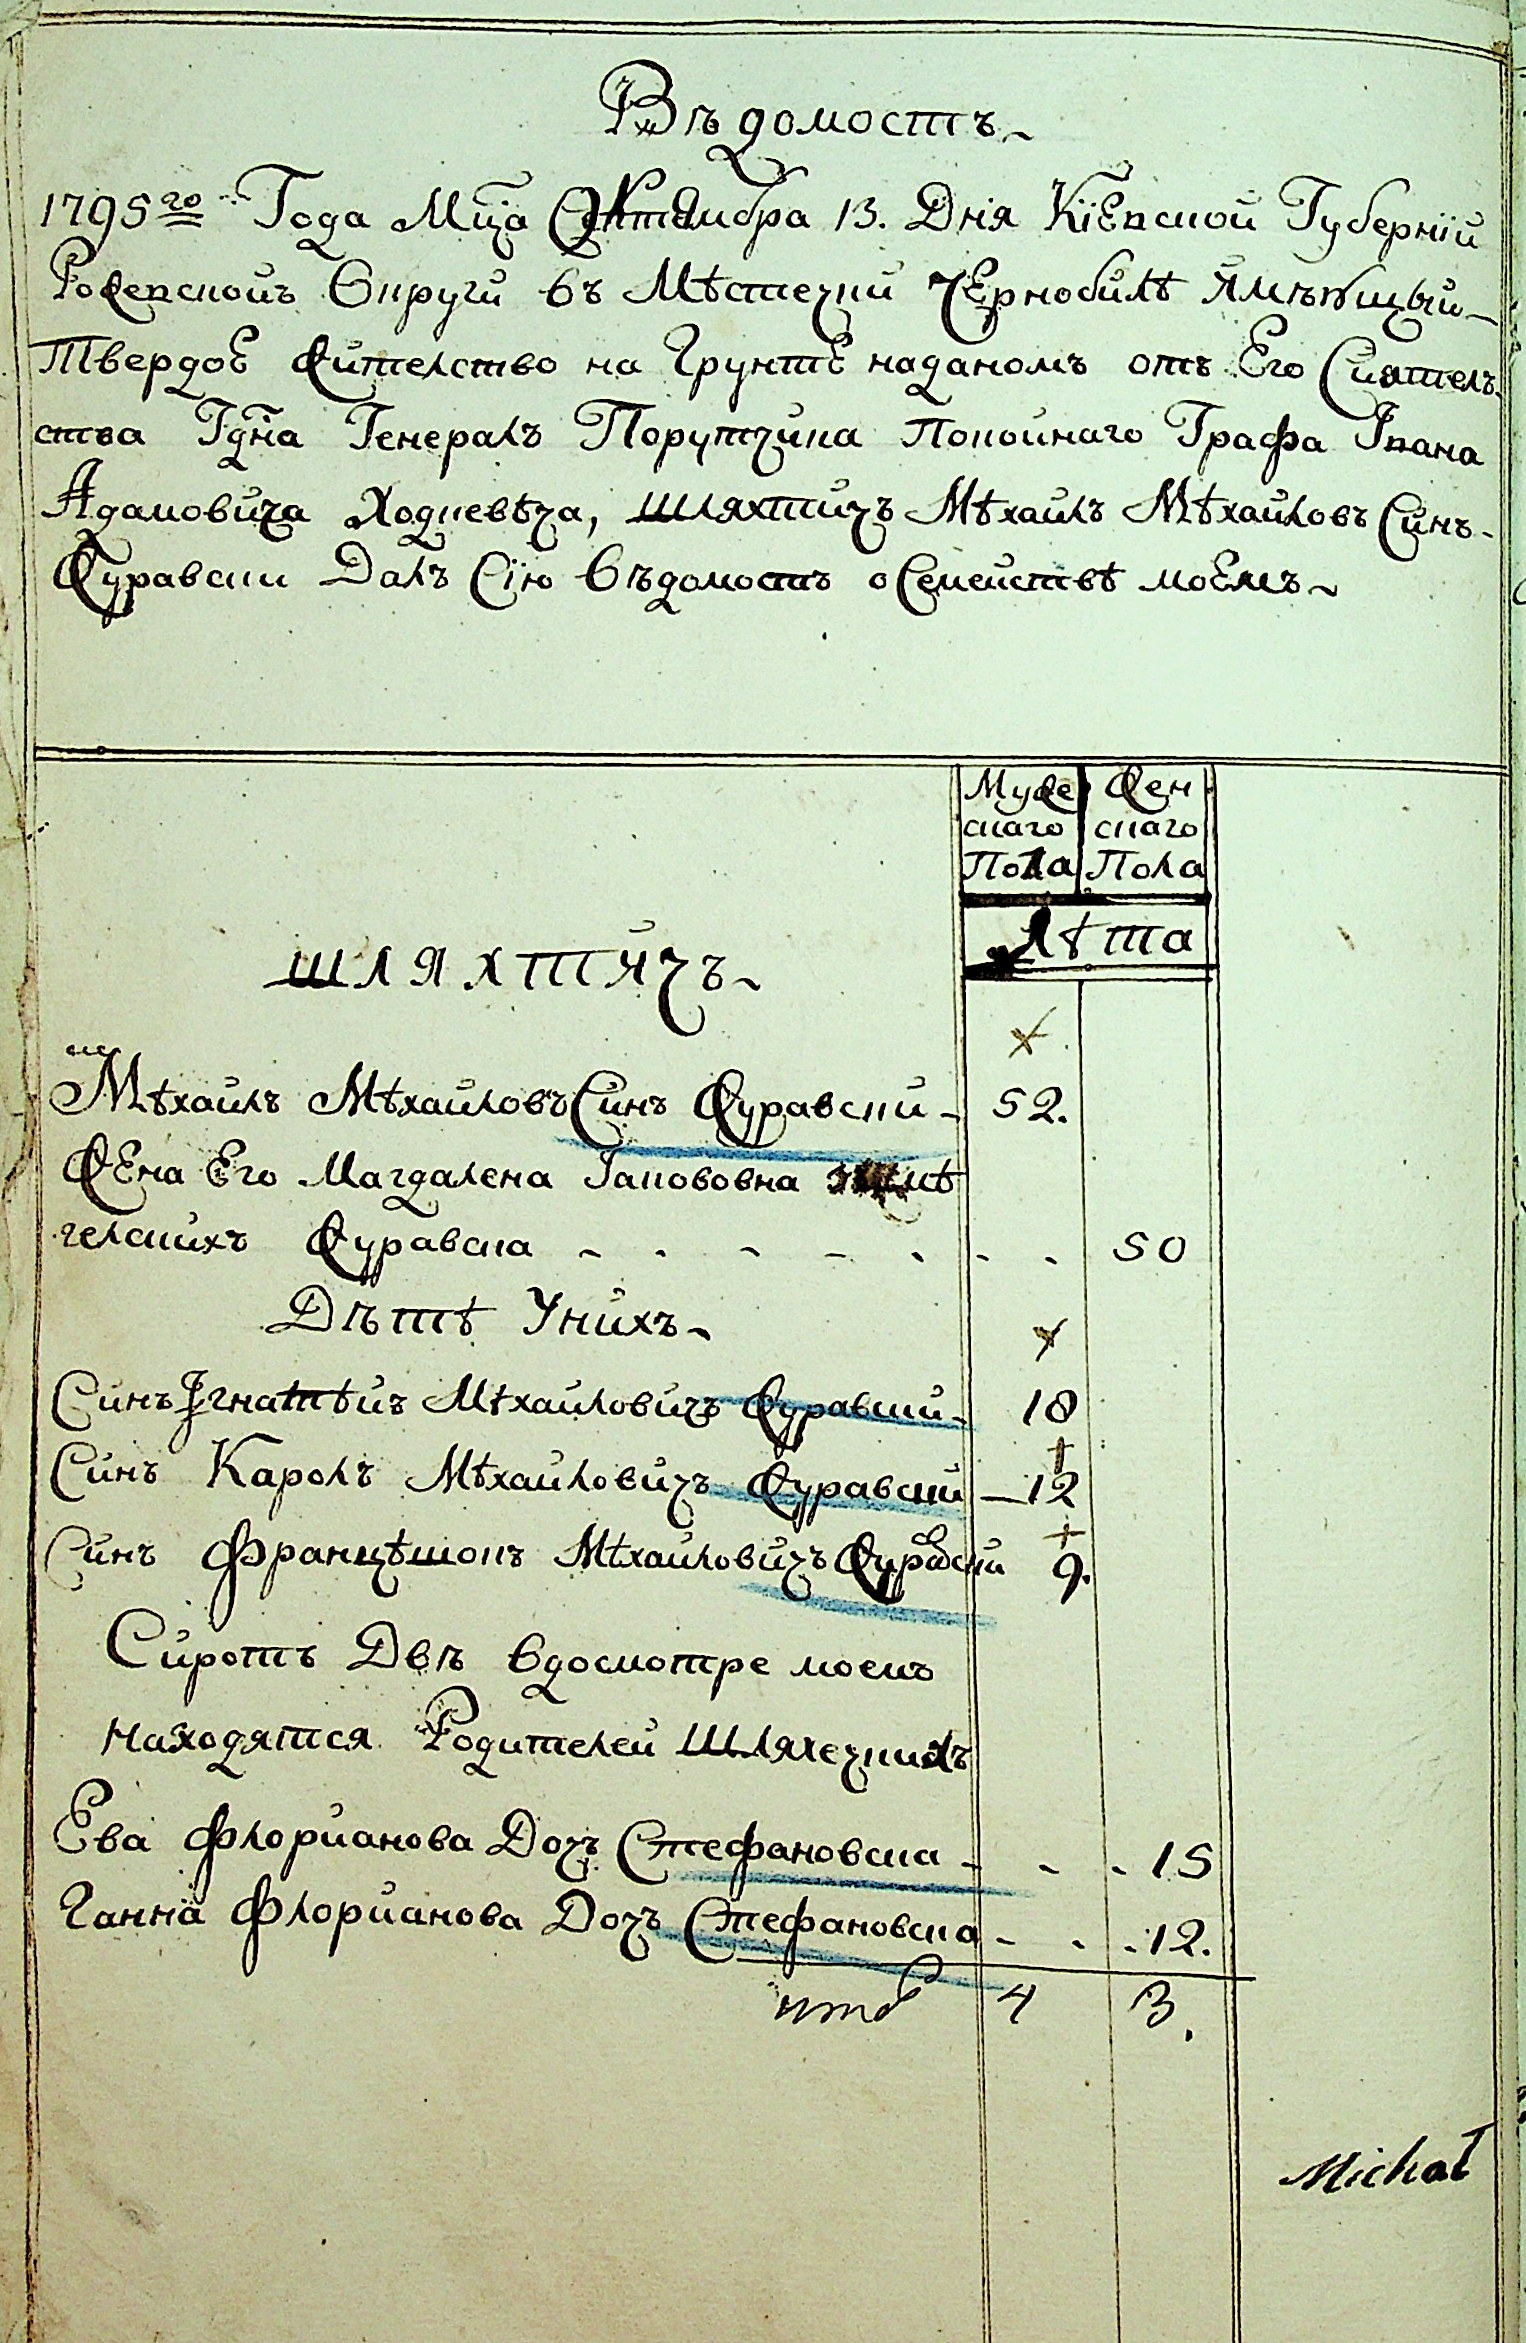 Вѣдомость
1795го Года Мца Октямбра 13. Дня Кіевской Губерніи
Рожевской Округи въ Мѣстечки Чернобилѣ Ямѣющый
Твердое Жителство на Грунтѣ наданомъ отъ Его Сиятель
ства Гдна Генералъ Порутчика Покойнаго Графа Івана
Адамовича Ходкевѣча, Шляхтичъ Мѣхайлъ Мѣхайловъ Синъ
Журавски Далъ Сію Вѣдомость о Семействѣ моемъ
Муже Жен
скаго скаго
Пола Пола
Лѣта
ШЛЯХТИЧЪ
Мѣхайлъ Мѣхайловъ Синъ Журавский 52.
Жена Его Магдалена Іаковова
гелскихъ Журавска 50
Дѣтѣ Унихъ
Синъ Ігнатѣй Мѣхайловичъ Журавский 18
Синъ Каролъ Мѣхайловичъ Журавский 12
Синъ Францѣшокъ Мѣхайловичъ Журавский 9.
Сиротъ Двѣ вдосмотре моемъ
Находятся Родителей Шляхечнихъ
Ева Флорианова Дочъ Стефановска 15
Ганна Флорианова Дочъ Стефановска 12.
итого 4 3.
Michał